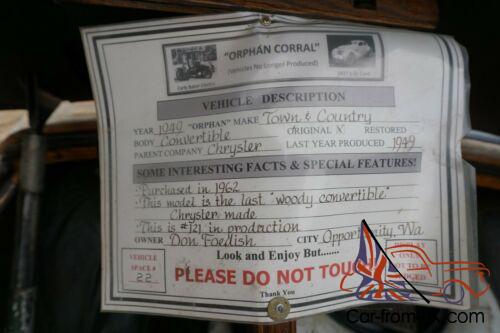 "ORPHAN CORRAL"
(Vehicles No Longer Produced)
Early Baker Electric
1937 Cord
VEHICLE DESCRIPTION
YEAR 1949 "ORPHAN" MAKE Town & Country
BODY Convertible ORIGINAL X RESTORED
PARENT COMPANY Chrysler LAST YEAR PRODUCED 1949
SOME INTERESTING FACTS & SPECIAL FEATURES!
·Purchased in 1962
·This model is the last "woody convertible"
Chrysler made
·This is #721 in production
OWNER Don Foedish CITY Opportunity, Wa
Look and Enjoy But.......
VEHICLE
SPACE #
22
DISPLAY
ONLY
NOT TO BE
JUDGED
PLEASE DO NOT TOUCH
Thank You
Car-from-UK.com